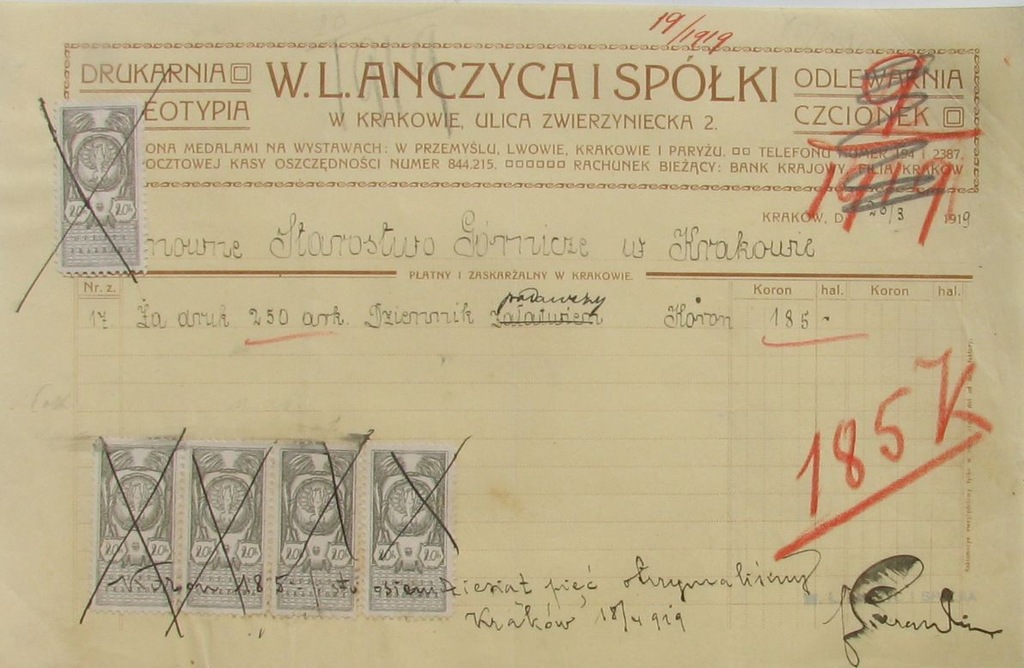 19/1919
DRUKARNIA W. L. ANCZYCA I SPÓŁKI ODLEWARNIA
EOTYPIA W KRAKOWIE, ULICA ZWIERZYNIECKA 2. CZCIONEK
ONA MEDALAMI NA WYSTAWACH: W PRZEMYŚLU, LWOWIE, KRAKOWIE I PARYŻU. TELEFONU NUMER 194 I 2387,
OCZTOWEJ KASY OSZCZĘDNOŚCI NUMER 844.215. RACHUNEK BIEŻĄCY: BANK KRAJOWY, FILIA KRAKÓW
9
1919
KRAKÓW, D. 20/3 1919
nowne Starostwo Górnicze w Krakowie
PŁATNY I ZASKARŻALNY W KRAKOWIE.
Nr. z. Koron hal. Koron hal.
podawczy
17 Za druk 250 ark. Dziennik Koron 185 -
185 K
20h 20h 20h 20h 20h
185 osiemdziesiąt pięć otrzymaliśmy
Kraków 18/4 919